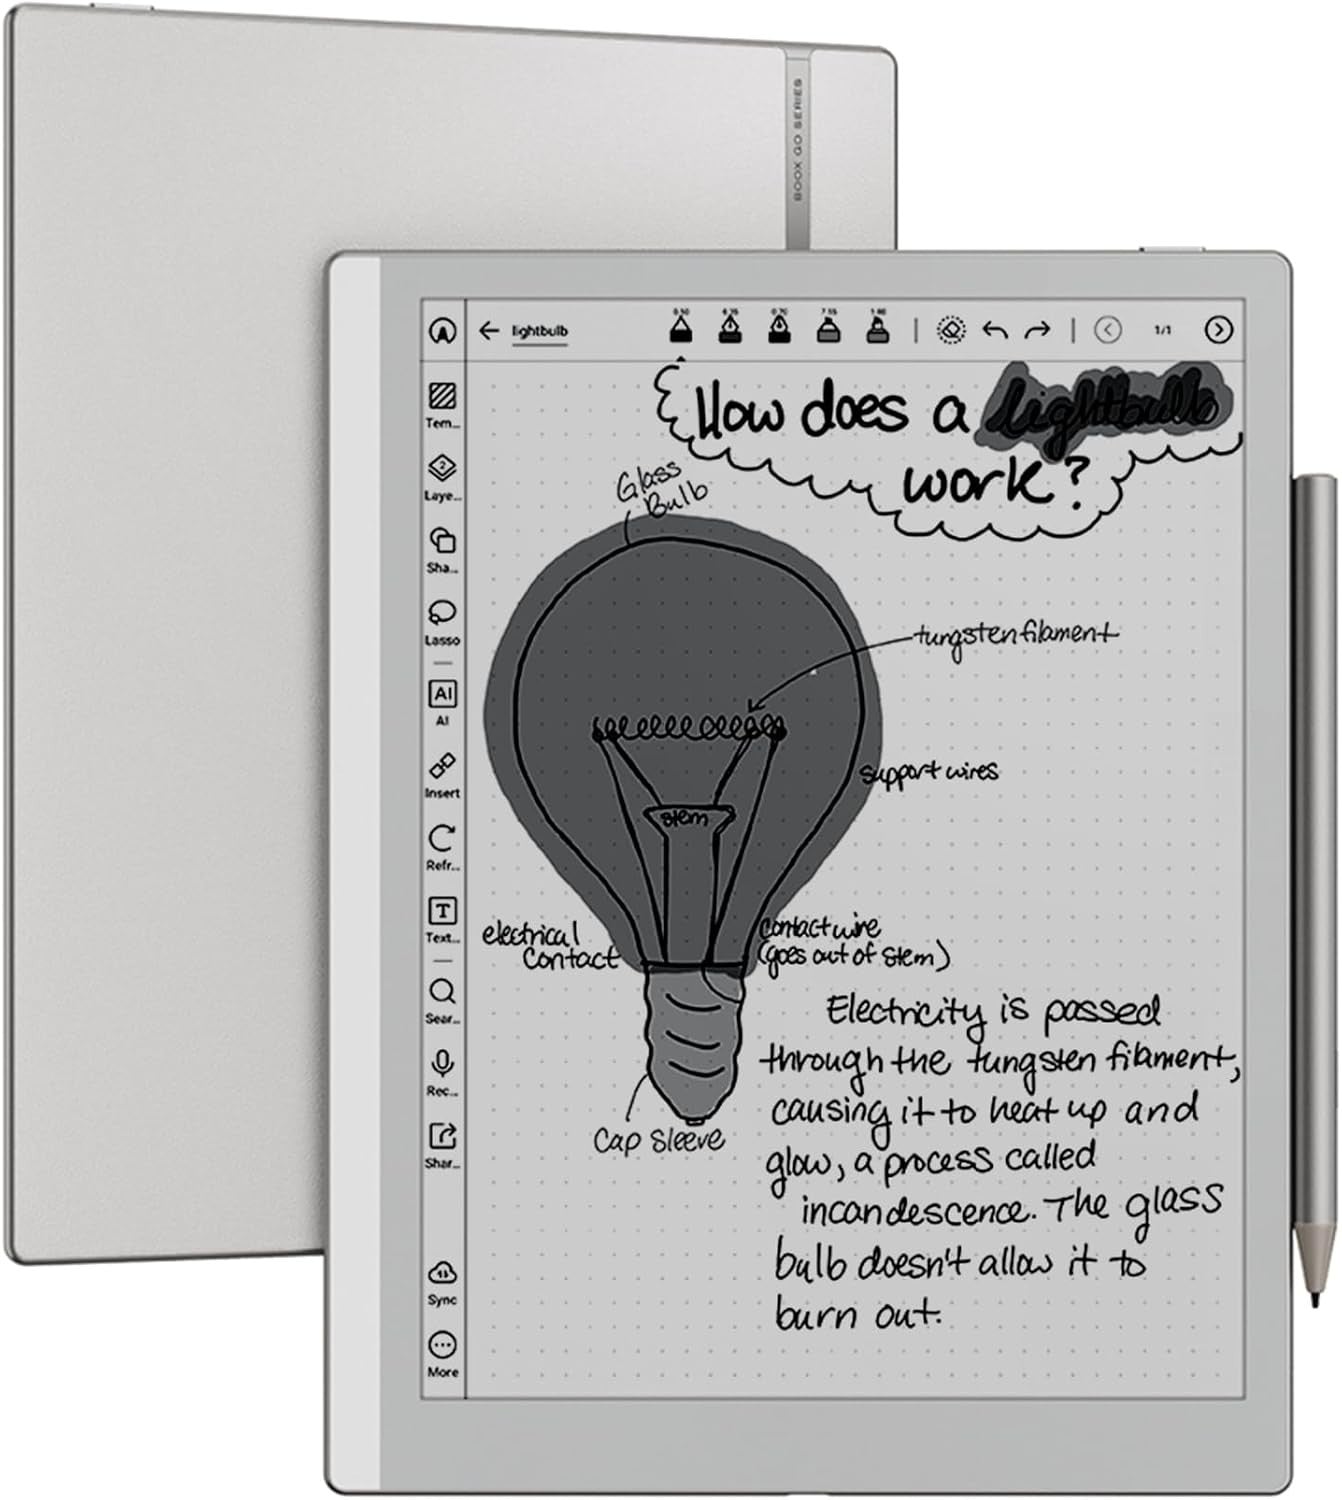 BOOX GO SERIES
lightbulb
0.50
0.70
7.55
1.80
1/1
Tem...
2
Laye...
Sha...
Lasso
AI
AI
Insert
Refr...
T
Text...
Sear...
Rec...
Shar...
Sync
More
How does a lightbulb
work?
Glass
Bulb
tungsten filament
support wires
stem
electrical
contact
contact wire
(goes out of stem)
Cap Sleeve
Electricity is passed
through the tungsten filament,
causing it to heat up and
glow, a process called
incandescence. The glass
bulb doesn't allow it to
burn out.